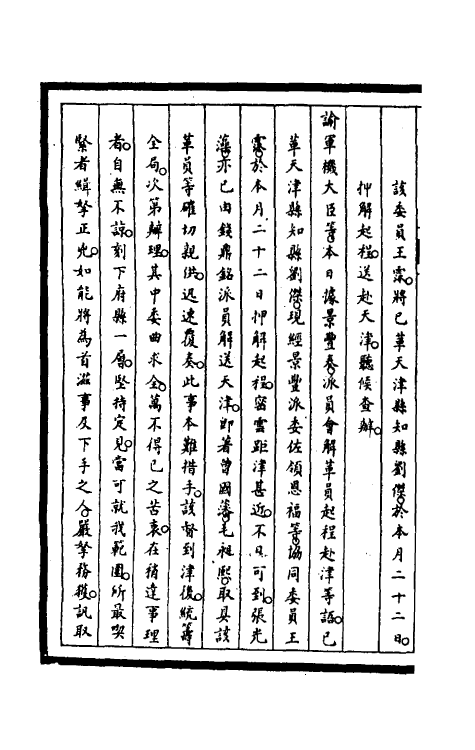 該委員王霖將已革天津縣知縣劉傑於本月二十二日
押解起程送赴天津聽候查辦
諭軍機大臣等本日據景豐奏派員會解革員起程赴津等語已
革天津縣知縣劉傑現經景豐派委佐領恩福等協同委員王
霖於本月二十二日押解起程密雲距津甚近不日可到張光
藻亦已由錢鼎銘派員解送天津即著曾國藩毛昶熙取具該
革員等確切親供迅速覆奏此事本難措手該督到津後統籌
全局次第辦理其中委曲求全萬不得已之苦衷在稍達事理
者自無不諒刻下府縣一層堅持定見當可就我範圍所最喫
緊者緝拏正兇如能將為首滋事及下手之人嚴拏務獲訊取